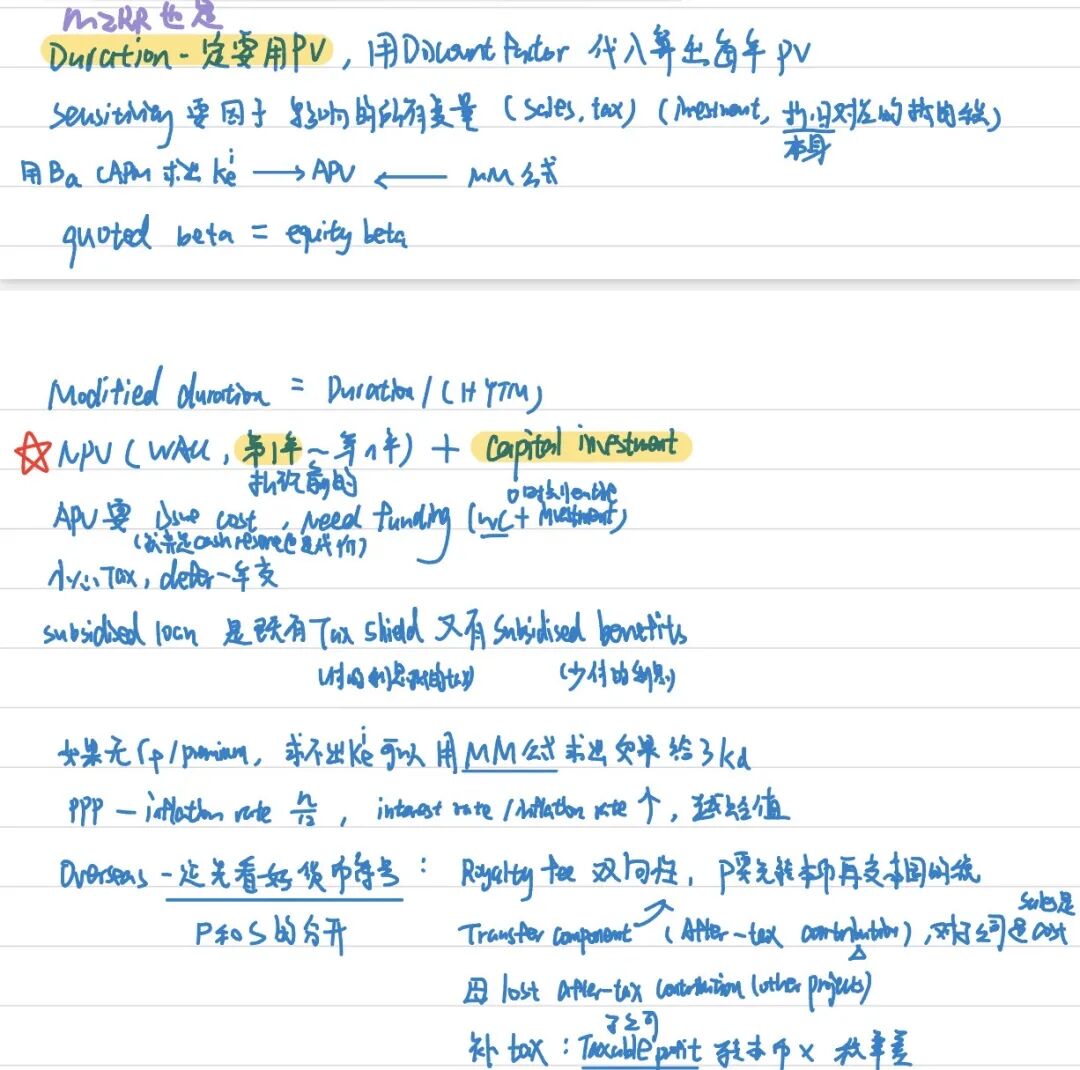 MIRR也是
Duration 一定要用PV，用Discount Factor 代入算出每年 PV
Sensitivity 要因子影响的所有变量（sales, tax）（investment, 折旧对应的税）
本身
用Ba CAPM 求出 Keⁱ → APV ← MM 公式
quoted beta = equity beta
Modified duration = Duration / (1+YTM)
☆ NPV (WACC, 第1年~第n年) + Capital investment
折现前的
APV 要 issue cost, need funding (WC + investment)
(如果是cash reserve也是代价)
小心Tax, defer一年交
subsidised loan 是既有 Tax shield 又有 Subsidised benefits
(付的利息抵的tax) (少付的利息)
如果无 rp/premium，求不出Keⁱ可以用MM公式求出如果给了kd
PPP — inflation rate n/12, interest rate / inflation rate ↑，越贬值
Overseas 一定先看好货币符号： Royalty fee 双向性，P要先转本币再交本国的税
P和S的分开
Transfer component (After-tax contribution), 对子公司是cost
sales是
因 lost After-tax contribution (other projects)
子公司
补 tax : Taxable profit 转本币 × 税率差